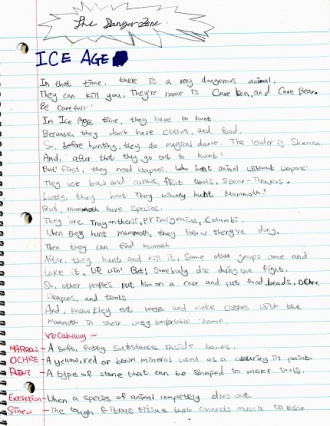 The Danger Zone
ICE AGE
In that time, there is a very dangerous animal.
They can kill you. They're name is Cave lion, and Cave Bear.
Be careful!
In Ice Age time, they have to hunt
Because they don't have clothes, and food.
So, before hunting, they do magical dance. The leader is Shaman.
And, after that they go out to hunt!
But! First, they need weapons. hunt animal without weapons!
They use bow and arrows, flint tools, Spear-Throws.
Lastly, they hunt. They usually hunt Mammoth!
But, mammoth have species.
They are Trogontherii, Primigenius, Columbi.
When they hunt mammoth, they they're dug.
Then they can find mammoth
After, they hunts and kill it, Some other groups come and
take it. UR win! But! Somebody die during the fight.
So, other people's put him on a cave and put food beads, ochre
weapons, and tools
And, they eat meat and make clothes with the
Mammoth in their very home.
Vocabulary-
MARROW - A soft, fatty substance inside bones.
OCHRE - A yellow, red or brown mineral used as a colouring in paint.
FLINT - A type of stone that can be shaped to make tools.
Extinction - When a species of animal completely dies out
Sinew - The tough fibrous tissue that connects muscle to bone.